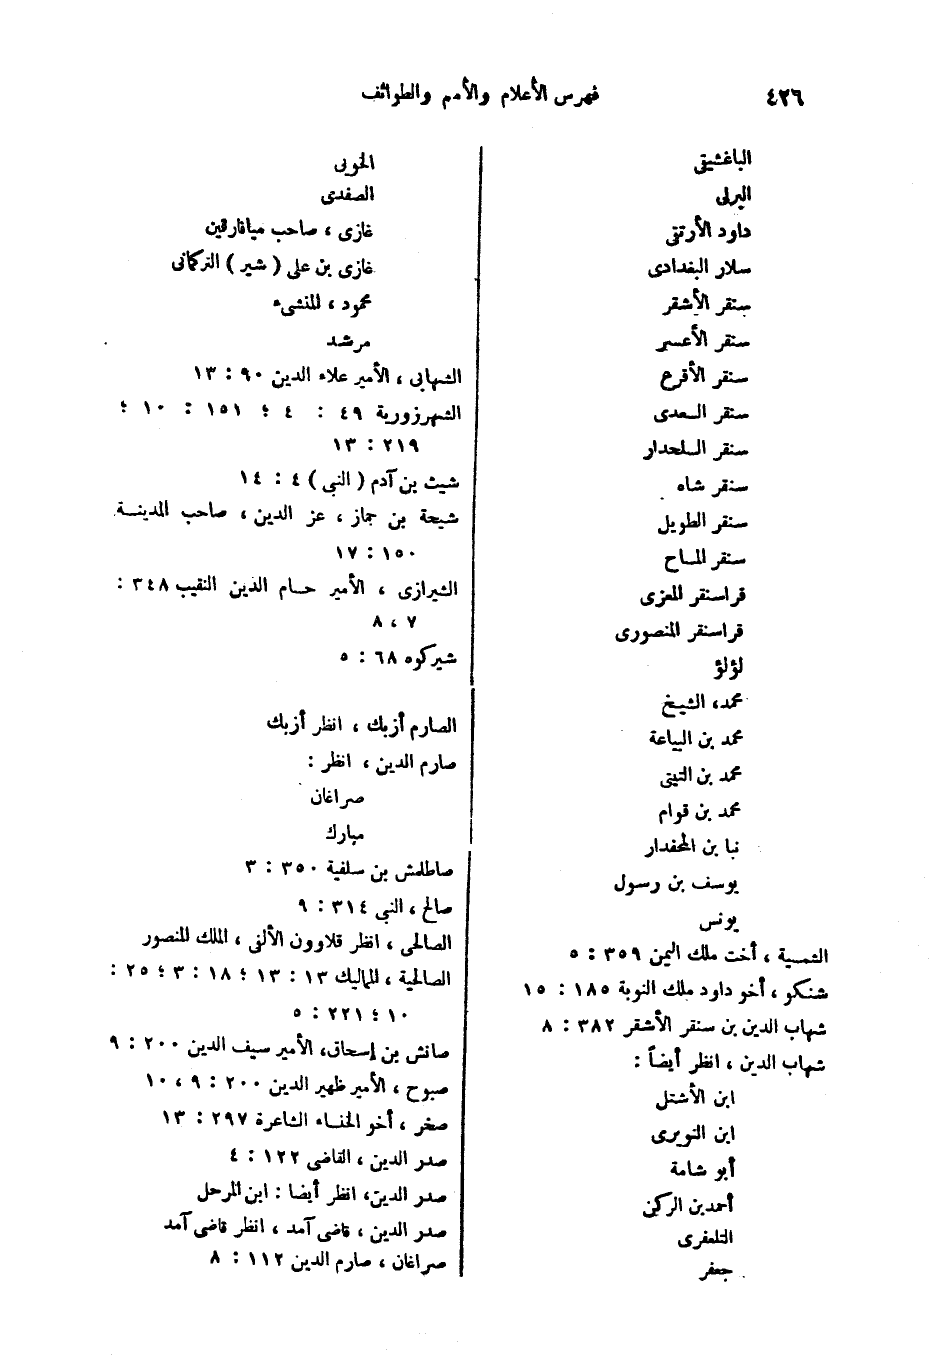 ٤٢٦
فهرس الأعلام والأمم والطوائف
الباغشيقى
البرلى
داود الأرتقى
سلار البغدادى
سنقر الأشقر
سنقر الأعسر
سنقر الأقرع
سنقر السعدى
سنقر السلحدار
سنقر شاه
سنقر الطويل
سنقر المساح
قراسنقر المعزى
قراسنقر المنصورى
لؤلؤ
محمد، الشيخ
محمد بن البياعة
محمد بن التيتى
محمد بن قوام
نبا بن المحفدار
يوسف بن رسول
يونس
الشمسية ، أخت ملك اليمن ٣٥٩ : ٥
شنكو ، أخو داود ملك النوبة ١٨٥ : ١٥
شهاب الدين بن سنقر الأشقر ٣٨٢ : ٨
شهاب الدين ، انظر أيضاً :
ابن الأشتل
ابن النويرى
أبو شامة
أحمد بن الركن
التلعفرى
جعفر
الخوبى
الصفدى
غازى ، صاحب ميافارقين
غازى بن على ( شير ) التركمانى
محمود ، المنشىء
مرشد
الشهابى ، الأمير علاء الدين ٩٠ : ١٣
الشهرزورية ٤٩ : ٤ ؛ ١٥١ : ١٠ ؛
٢١٩ : ١٣
شيث بن آدم ( النبى ) ٤ : ١٤
شيحة بن جماز ، عز الدين ، صاحب المدينة
١٥٠ : ١٧
الشيرازى ، الأمير حسام الدين النقيب ٣٤٨ :
٧ ، ٨
شيركوه ٦٨ : ٥
الصارم أزبك ، انظر أزبك
صارم الدين ، انظر :
صراغان
مبارك
صاطلمش بن سلفية ٣٥٠ : ٣
صالح ، النبى ٣١٤ : ٩
الصالحى ، انظر قلاوون الألفى ، الملك المنصور
الصالحية ، المماليك ١٣ : ١٣ ؛ ١٨ : ٣ ؛ ٢٥ :
١٠ ؛ ٢٢١ : ٥
صانش بن إسحاق، الأمير سيف الدين ٢٠٠ : ٩
صبوح ، الأمير ظهير الدين ٢٠٠ : ٩ ، ١٠
صخر ، أخو الخنساء الشاعرة ٢٩٧ : ١٣
صدر الدين ، القاضى ١٢٢ : ٤
صدر الدين، انظر أيضا : ابن المرحل
صدر الدين ، قاضى آمد ، انظر قاضى آمد
صراغان ، صارم الدين ١١٢ : ٨